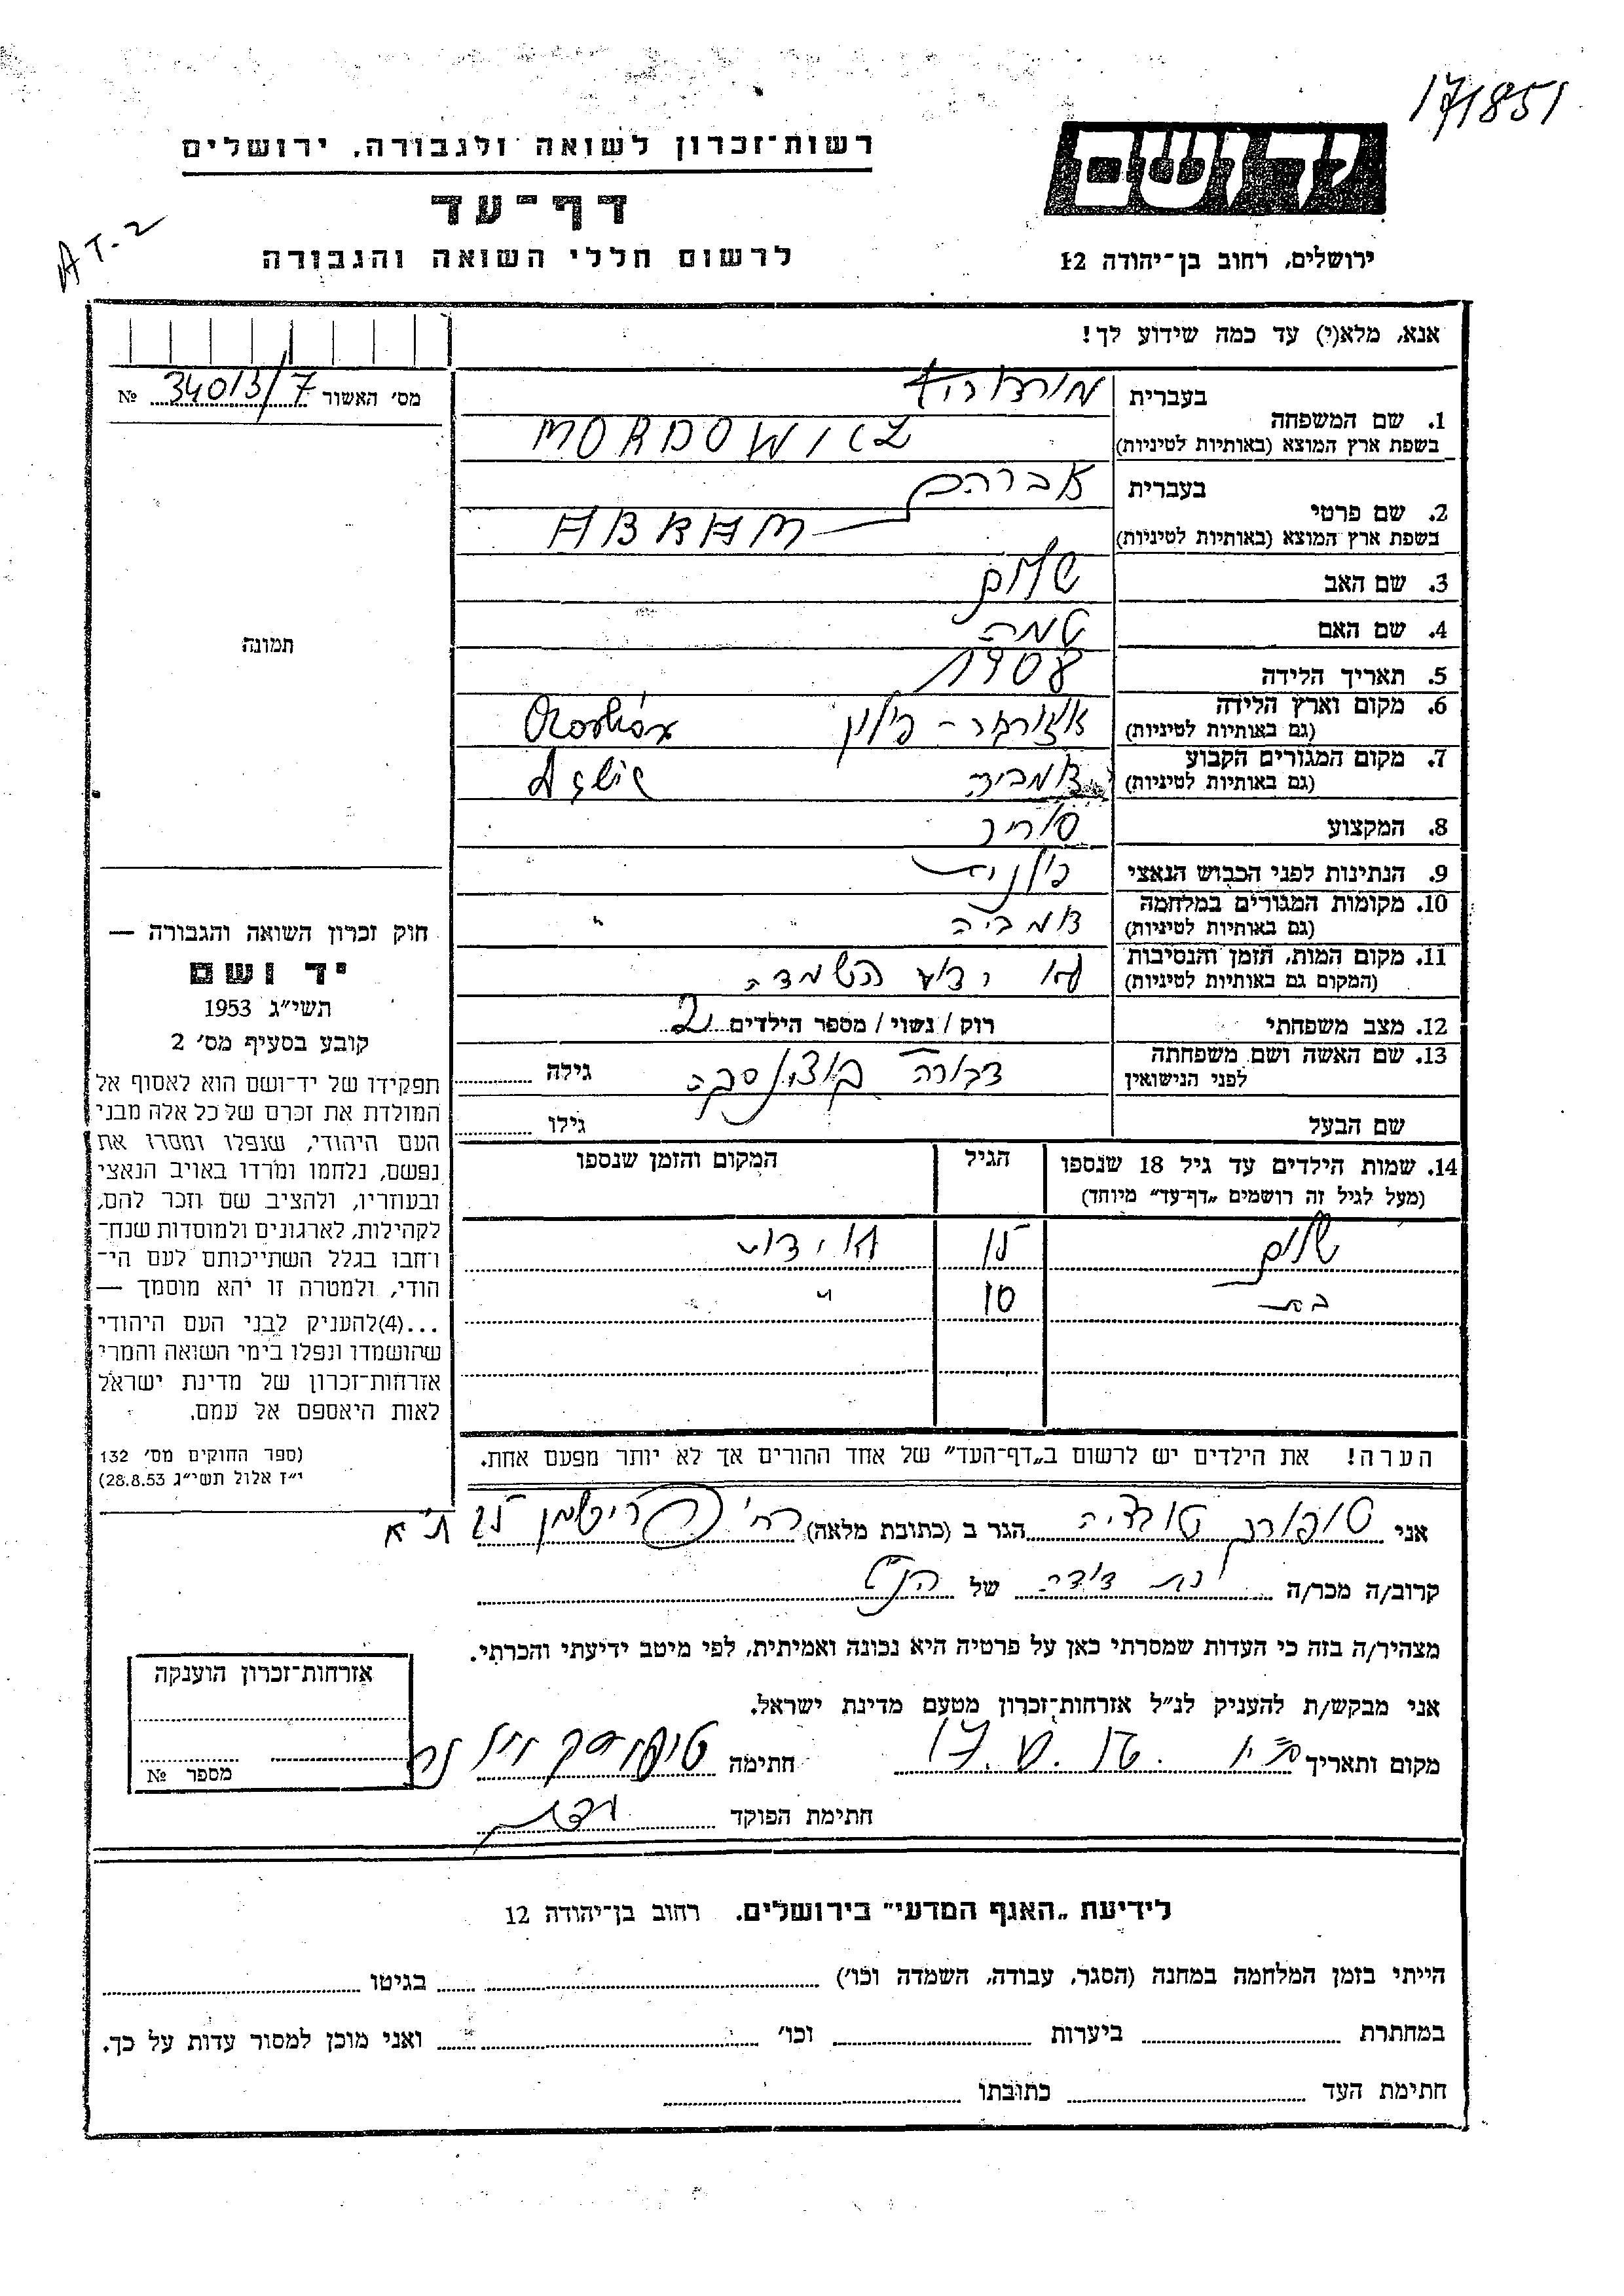 171851
יד ושם
רשות־זכרון לשואה ולגבורה, ירושלים
דף־עד
AT-2
לרשום חללי השואה והגבורה
ירושלים, רחוב בן־יהודה 12
אנא, מלא(י) עד כמה שידוע לך!
מס׳ האשור 34013/7 №
תמונה
חוק זכרון השואה והגבורה —
יד ושם
תשי״ג 1953
קובע בסעיף מס׳ 2
תפקידו של יד־ושם הוא לאסוף אל
המולדת את זכרם של כל אלה מבני
העם היהודי, שנפלו ומסרו את
נפשם, נלחמו ומרדו באויב הנאצי
ובעוזריו, ולהציב שם וזכר להם,
לקהילות, לארגונים ולמוסדות שנח־
רבו בגלל השתייכותם לעם הי־
הודי, ולמטרה זו יהא מוסמך —
...(4)להעניק לבני העם היהודי
שהושמדו ונפלו בימי השואה והמרי
אזרחות־זכרון של מדינת ישראל
לאות היאספם אל עמם.
(ספר החוקים מס׳ 132
י״ז אלול תשי״ג 28.8.53)
בעברית
1. שם המשפחה
בשפת ארץ המוצא (באותיות לטיניות) MORDOWICZ
בעברית אברהם
2. שם פרטי
בשפת ארץ המוצא (באותיות לטיניות) ABRAM
3. שם האב שלום
4. שם האם
5. תאריך הלידה 1908
6. מקום וארץ הלידה פולין
(גם באותיות לטיניות)
7. מקום המגורים הקבוע
(גם באותיות לטיניות)
8. המקצוע סוחר
9. הנתינות לפני הכבוש הנאצי פולנית
10. מקומות המגורים במלחמה
(גם באותיות לטיניות)
11. מקום המות, הזמן והנסיבות לא ידוע השמדה
(המקום גם באותיות לטיניות)
12. מצב משפחתי רוק / נשוי / מספר הילדים 2
13. שם האשה ושם משפחתה דבורה גילה
לפני הנישואין
שם הבעל גילו
14. שמות הילדים עד גיל 18 שנספו הגיל המקום והזמן שנספו
(מעל לגיל זה רושמים „דף־עד״ מיוחד)
שלום לא ידוע
בת 10 "
הערה! את הילדים יש לרשום ב„דף־העד״ של אחד ההורים אך לא יותר מפעם אחת.
אני הגר ב (כתובת מלאה) רח׳ ת״א
קרוב/ה מכר/ה בת דודה של הנ״ל
מצהיר/ה בזה כי העדות שמסרתי כאן על פרטיה היא נכונה ואמיתית, לפי מיטב ידיעתי והכרתי.
אני מבקש/ת להעניק לנ״ל אזרחות־זכרון מטעם מדינת ישראל.
מקום ותאריך חתימה
חתימת הפוקד
אזרחות־זכרון הוענקה
מספר №
לידיעת „האגף המדעי״ בירושלים. רחוב בן־יהודה 12
הייתי בזמן המלחמה במחנה (הסגר, עבודה, השמדה וכו׳) בגיטו
במחתרת ביערות וכו׳ ואני מוכן למסור עדות על כך.
חתימת העד כתובתו